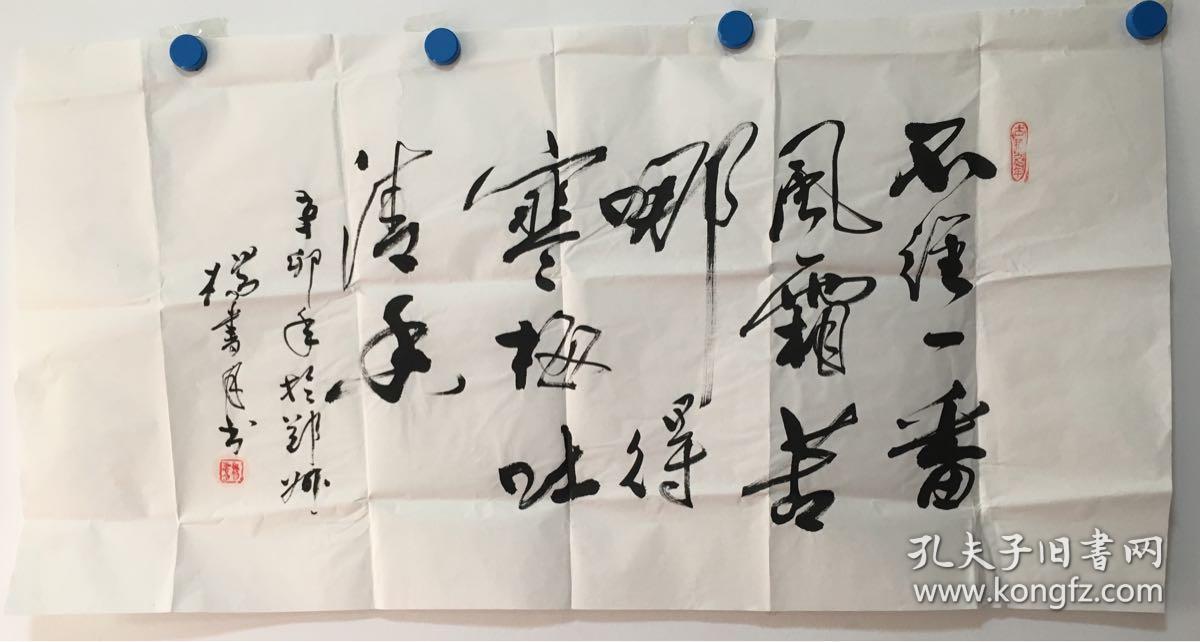 不经一番
风霜苦
哪得
寒梅吐
清香
辛卯年于郑州
杨书月书
孔夫子旧书网
www.kongfz.com